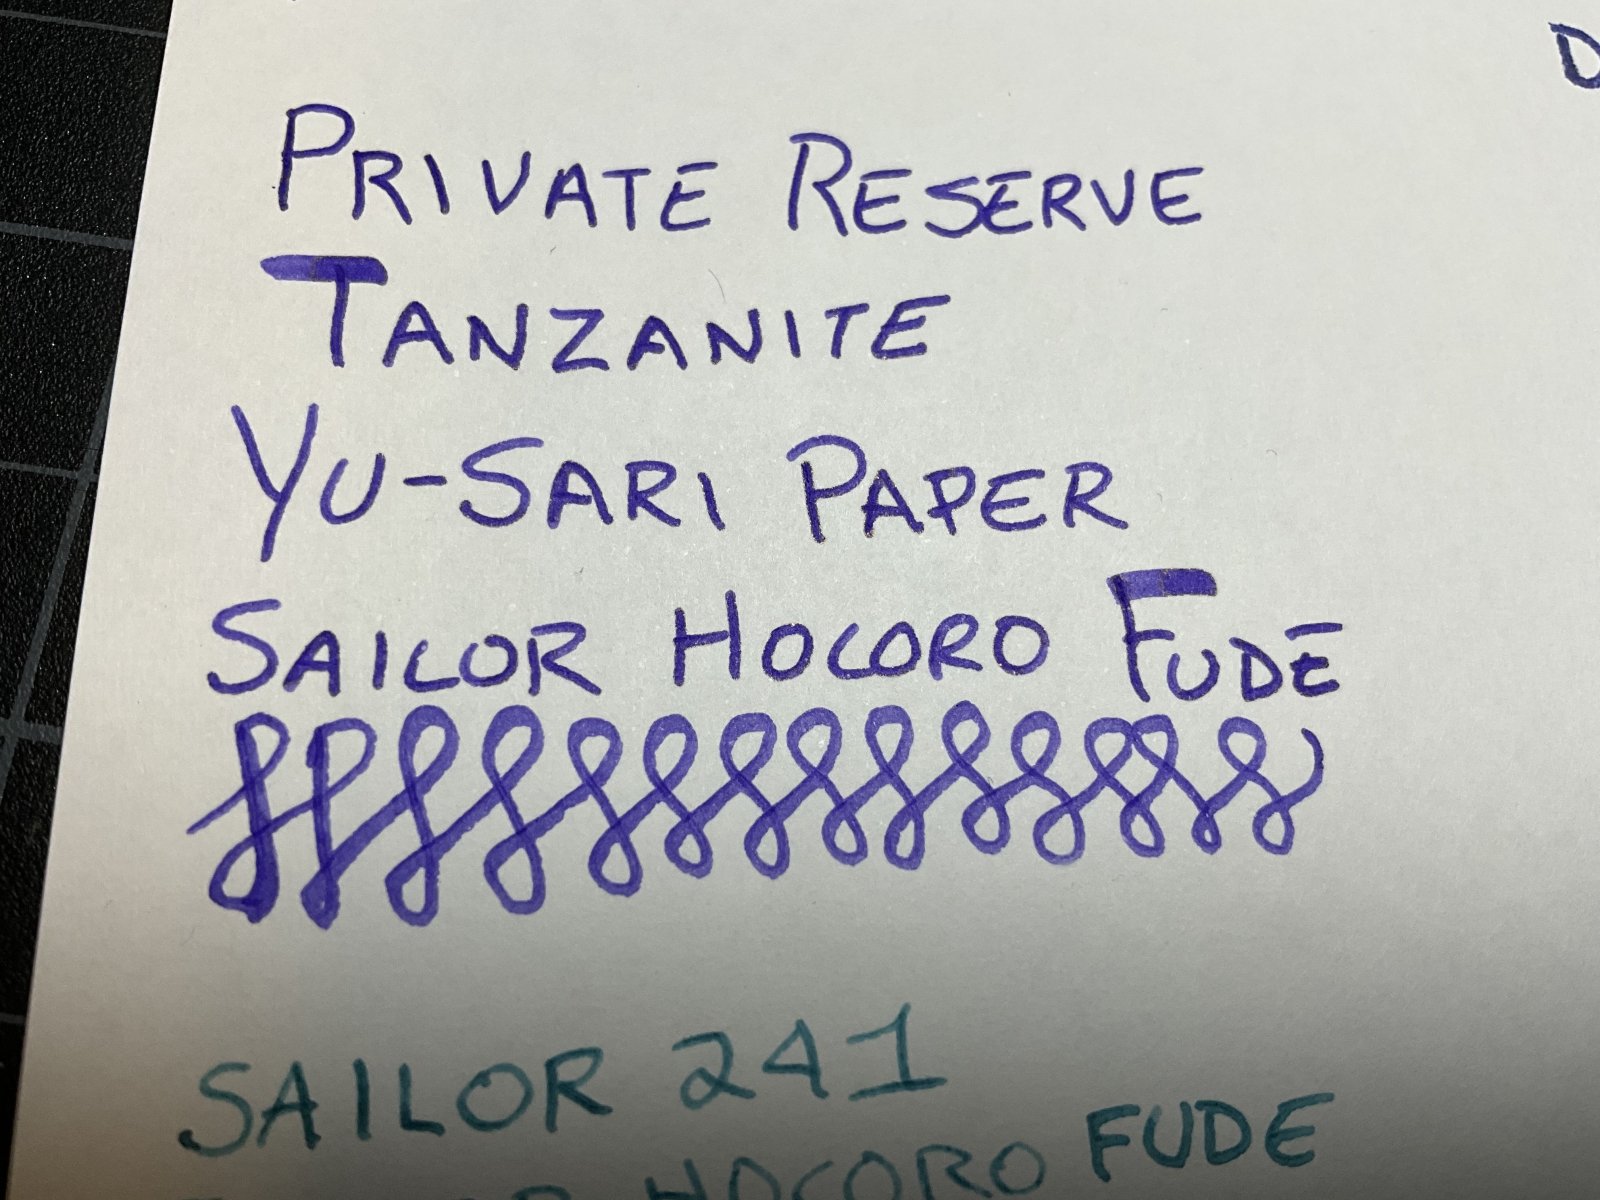 PRIVATE RESERVE
TANZANITE
YU-SARI PAPER
SAILOR HOCORO FUDE
SAILOR 241
HOCORO FUDE